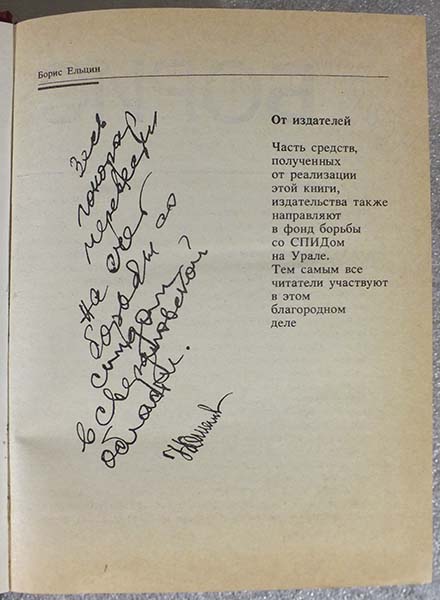 Борис Ельцин
Весь
гонорар
перевожу
на счет
борьбы со
спидом
в Свердловской
области.
От издателей
Часть средств,
полученных
от реализации
этой книги,
издательства также
направляют
в фонд борьбы
со СПИДом
на Урале.
Тем самым все
читатели участвуют
в этом
благородном
деле